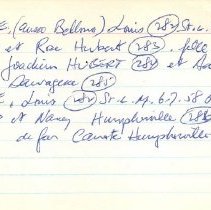 E, (aussi Bellone) Louis (282) St. L.
et Rose Hubert (283), fille
Joachim HUBERT (284) et
Sauvagesse (285)
E, Louis (282) St-L. M. 6.7.58
et Nancy Humphreville (286)
de feu Canote Humphreville